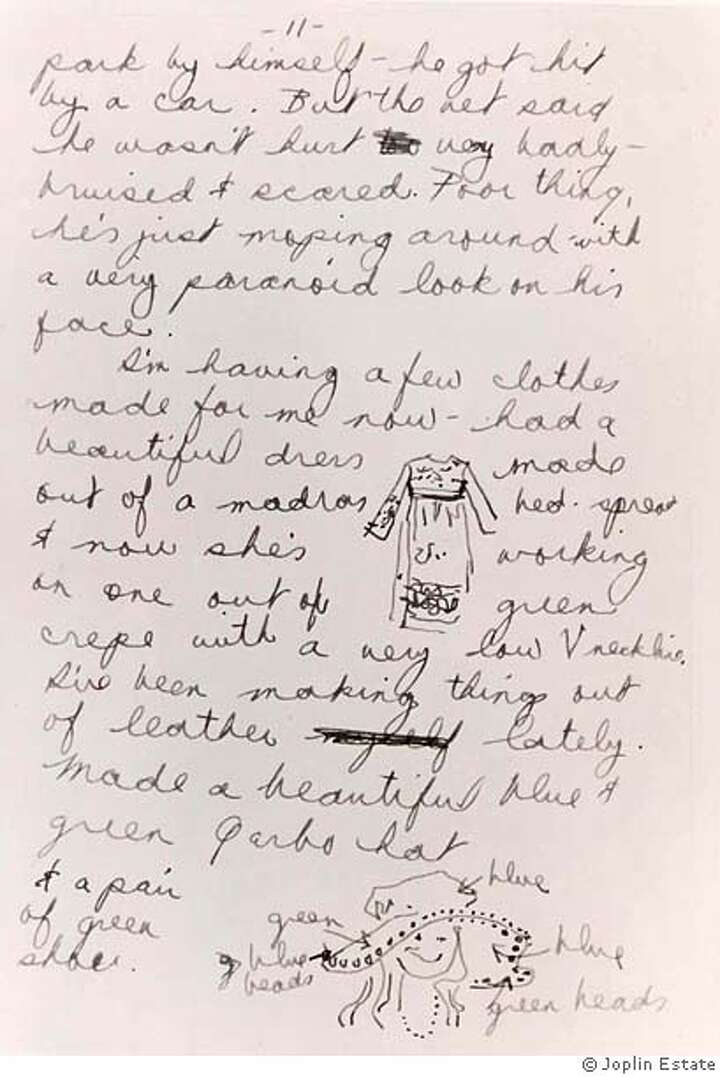 -11-
park by himself - he got hit
by a car. But the vet said
he wasn't hurt very badly -
bruised & scared. Poor thing,
he's just moping around with
a very paranoid look on his
face.
I'm having a few clothes
made for me now - had a
beautiful dress made
out of a madras bed-spread
& now she's working
on one out of green
crepe with a very low V neckline.
I've been making things out
of leather myself lately.
Made a beautiful blue &
green Garbo hat
& a pair
of green
shoes.
blue
green
blue
beads
blue
green beads
© Joplin Estate